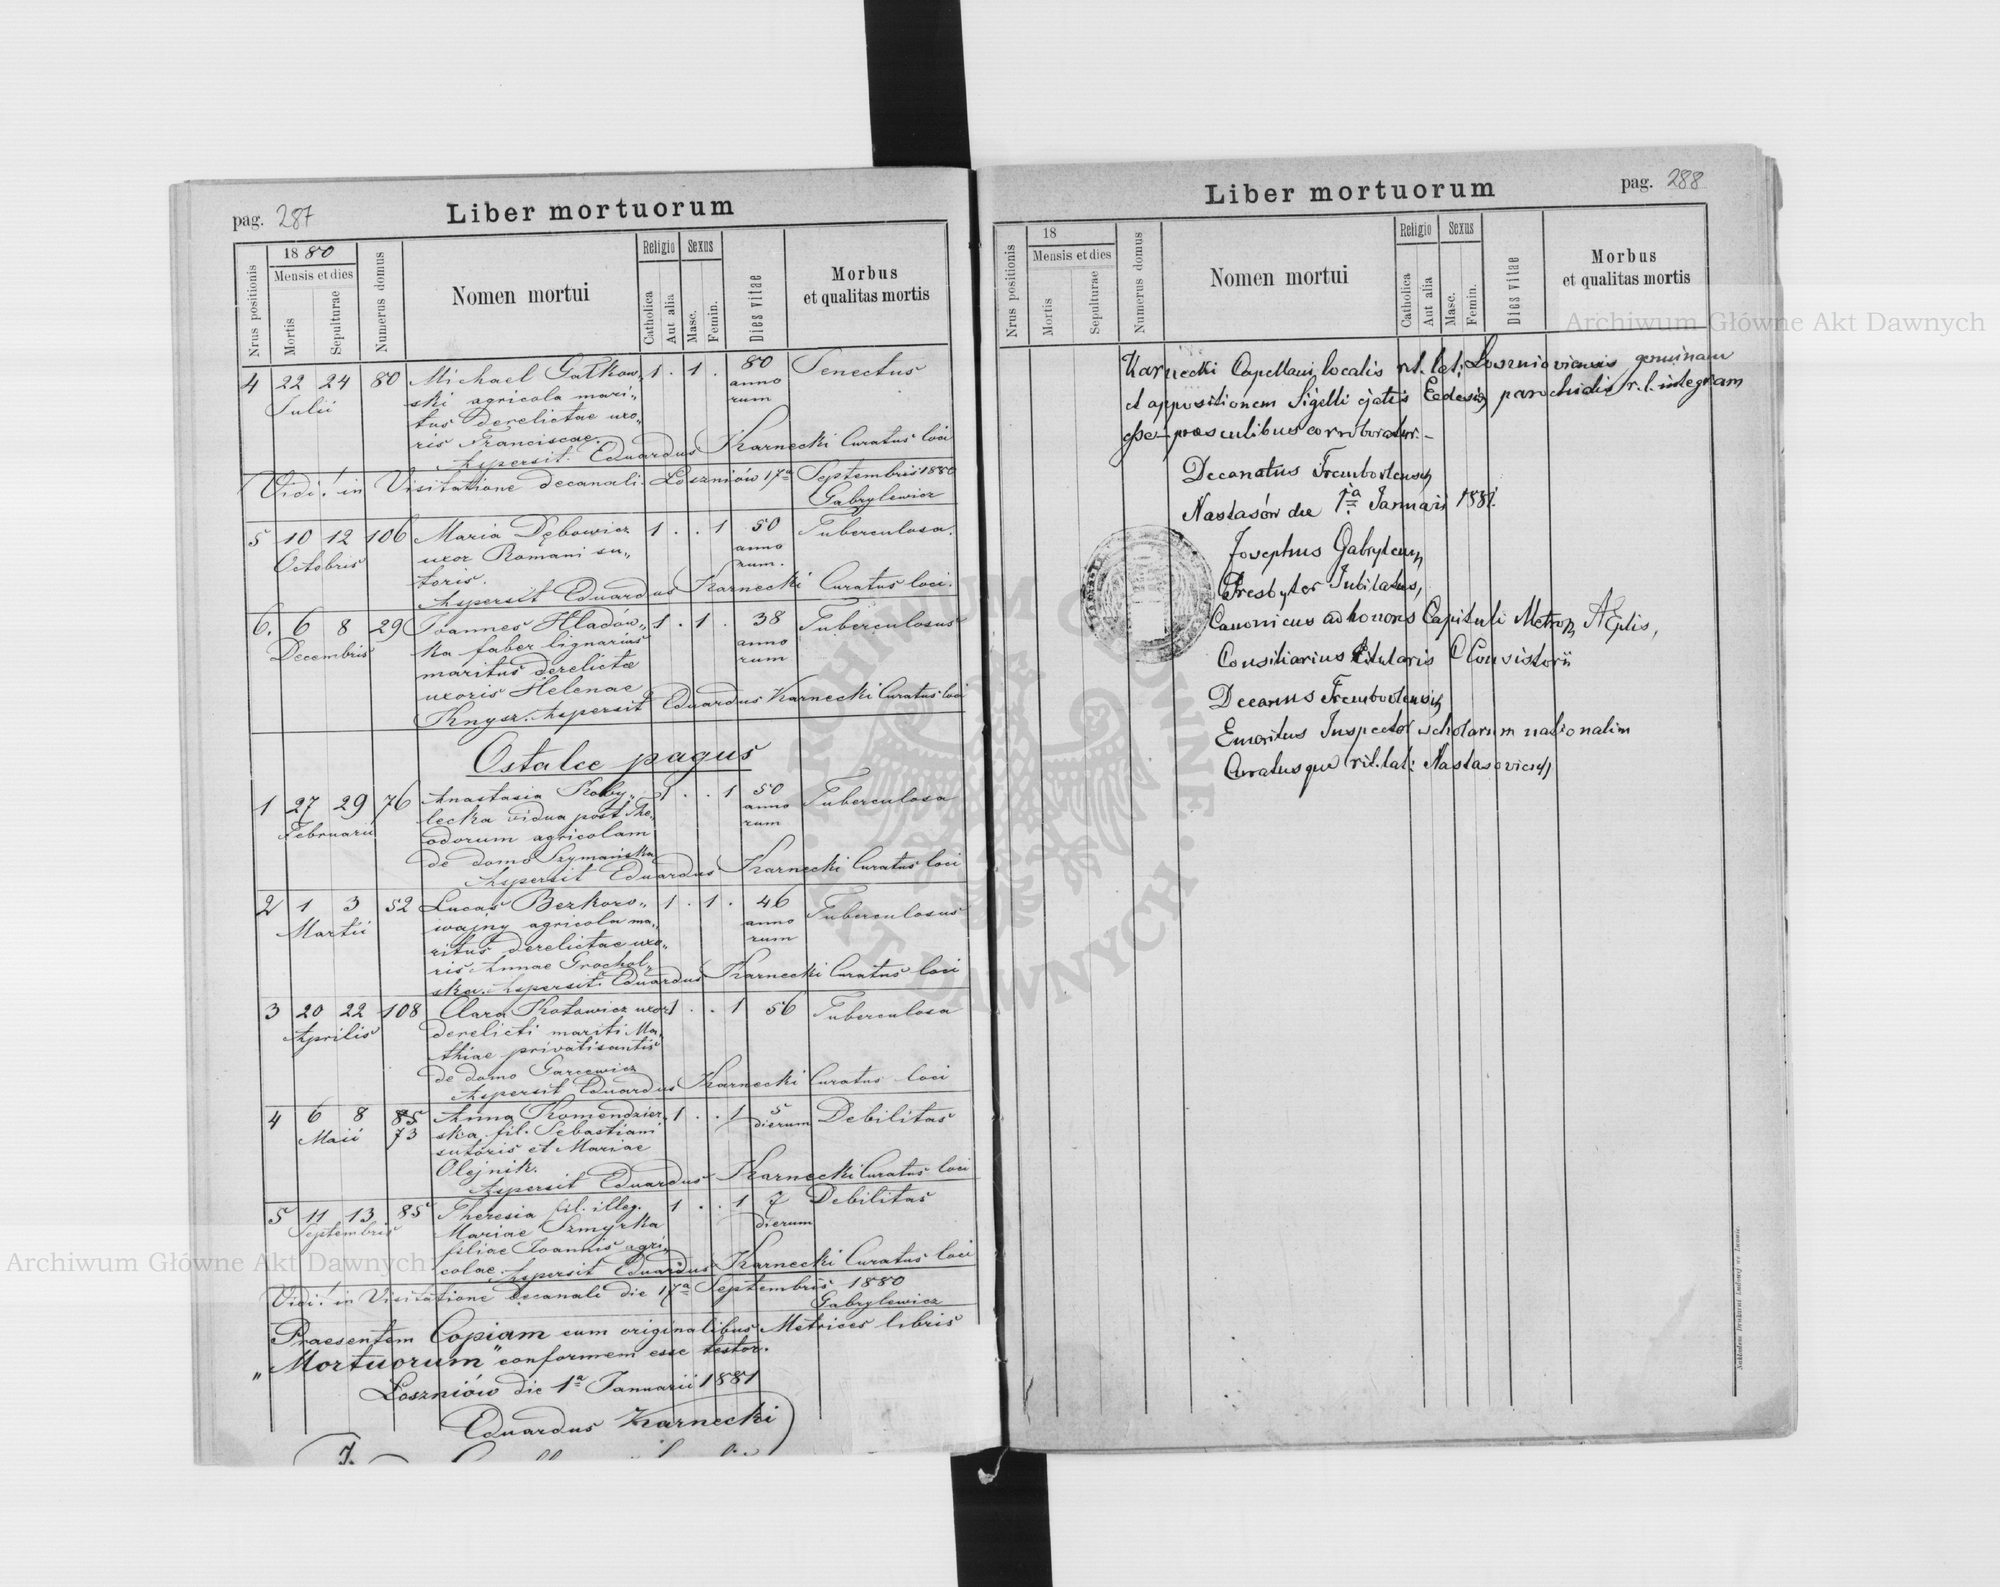 pag. 287
Liber mortuorum
Nrus positionis
1880
Mensis et dies
Mortis
Sepulturae
Numerus domus
Nomen mortui
Religio
Catholica
Aut alia
Sexus
Masc.
Femin.
Dies vitae
Morbus
et qualitas mortis
4 22 24 80 Michael Gałkow„ 1 . 1 . 80 Senectus
Julii ski agricola mari„ anno
tus derelictae uxo„ rum
ris Franciscae.
Aspersit. Eduardus Karnecki Curatus loci
Vidi! in Visitatione decanali Łoszniów 17a Septembris 1880
Gabrylewicz
5 10 12 106 Maria Dębowicz 1 . . 1 50 Tuberculosa.
Octobris uxor Romani su„ anno
toris. rum.
Aspersit Eduardus Karnecki Curatus loci.
6. 6 8 29 Joannes Hladów„ 1 . 1 . 38 Tuberculosus
Decembris ka faber lignarius anno
maritus derelictae rum
uxoris Helenae
Knysz. Aspersit Eduardus Karnecki Curatus loci
Ostalce pagus
1 27 29 76 Anastasia Koby„ 1 . . 1 50 Tuberculosa
Februarii lecka vidua post The„ anno
odorum agricolam rum
de domo Szymańska
Aspersit Eduardus Karnecki Curatus loci
2 1 3 52 Lucas Bezkoro„ 1 . 1 . 46 Tuberculosus
Martii wajny agricola ma„ anno
ritus derelictae uxo„ rum
ris Annae Grochol„
ska. Aspersit. Eduardus Karnecki Curatus loci
3 20 22 108 Clara Kotowicz uxor 1 . . 1 56 Tuberculosa
Aprilis derelicti mariti Ma„
thiae privatisantis
de domo Garcewicz
Aspersit Eduardus Karnecki Curatus loci
4 6 8 85 Anna Komendzier„ 1 . . 1 5 Debilitas
Maii 73 ska fil. Sebastiani dierum
sutoris et Mariae
Olejnik.
Aspersit Eduardus Karnecki Curatus loci
5 11 13 85 Theresia fil. illeg. 1 . . 1 7 Debilitas
Septembris Mariae Szmyrka dierum
filiae Joannis agri„
colae. Aspersit Eduardus Karnecki Curatus loci
Vidi! in Visitatione decanali die 17a Septembris 1880
Gabrylewicz
Praesentem Copiam cum originalibus Metrices libris
„Mortuorum" conformem esse testor.
Łoszniów die 1a Januarii 1881
Eduardus Karnecki
pag. 288
Liber mortuorum
Nrus positionis
18
Mensis et dies
Mortis
Sepulturae
Numerus domus
Nomen mortui
Religio
Catholica
Aut alia
Sexus
Masc.
Femin.
Dies vitae
Morbus
et qualitas mortis
Karnecki Capellani localis rit. lat. Losznioviensis genuinam
et appositionem Sigilli ejatis Ecclesiae parochialis r. l. integram
esse praesentibus corroboratur.
Decanatus Trembovlensis
Nastasów die 1a Januarii 1881.
Josephus Gabrylewicz
Presbyter Jubilatus,
Canonicus ad honores Capituli Metrop. AEplis,
Consiliarius titularis Consistorii
Decanus Trembovlensis
Emeritus Inspector scholarum nationalium
Curatusque rit. lat. Nastasoviensis
Archiwum Główne Akt Dawnych
Archiwum Główne Akt Dawnych
ARCHIWUM GŁÓWNE
AKT DAWNYCH